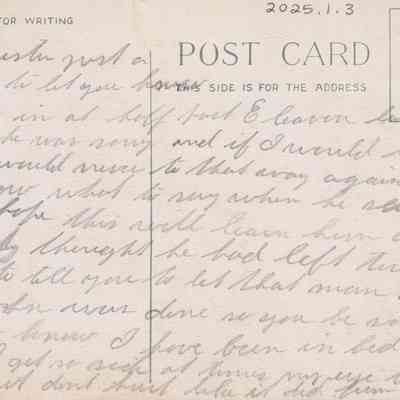 2025.1.3
FOR WRITING
POST CARD
THIS SIDE IS FOR THE ADDRESS
just a
to let you know
in at half past E leaven
he was sorry and if I would
would never to that away again
what to say when he
hope this will learn him
thought he had left
to tell you to let that man
was done so you be
know I have been in bed
get so sick at times my eye
it dont hurt like it did